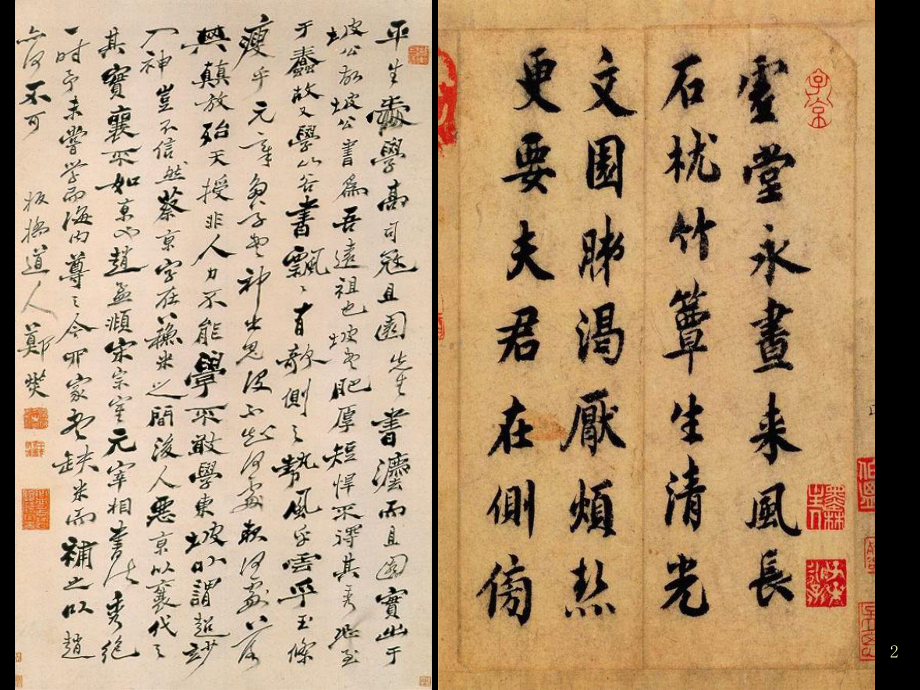 平生愛學高司寇且園先生書灋而且園實出于
坡公故坡公書爲吾遠祖也坡書肥厚短悍不得其秀恐至
于蠢故又學山谷書飄〻有欹側之勢風乎雲乎玉條
瘦乎元章多草書神出鬼沒不知何處起何處落
其顛放殆天授非人力不能學不敢學東坡以謂超妙
入神豈不信然蔡京字在蘇米之間後人惡京以襄代之
其實襄不如京也趙孟頫宋宗室元宰相書法秀絕
一時予未嘗學而海內尊之今四家書缺米而補之以趙
亦何不可 板橋道人鄭燮
虛堂永晝来風長
石枕竹簟生清光
文園肺渴厭煩熱
更要夫君在側傍
2